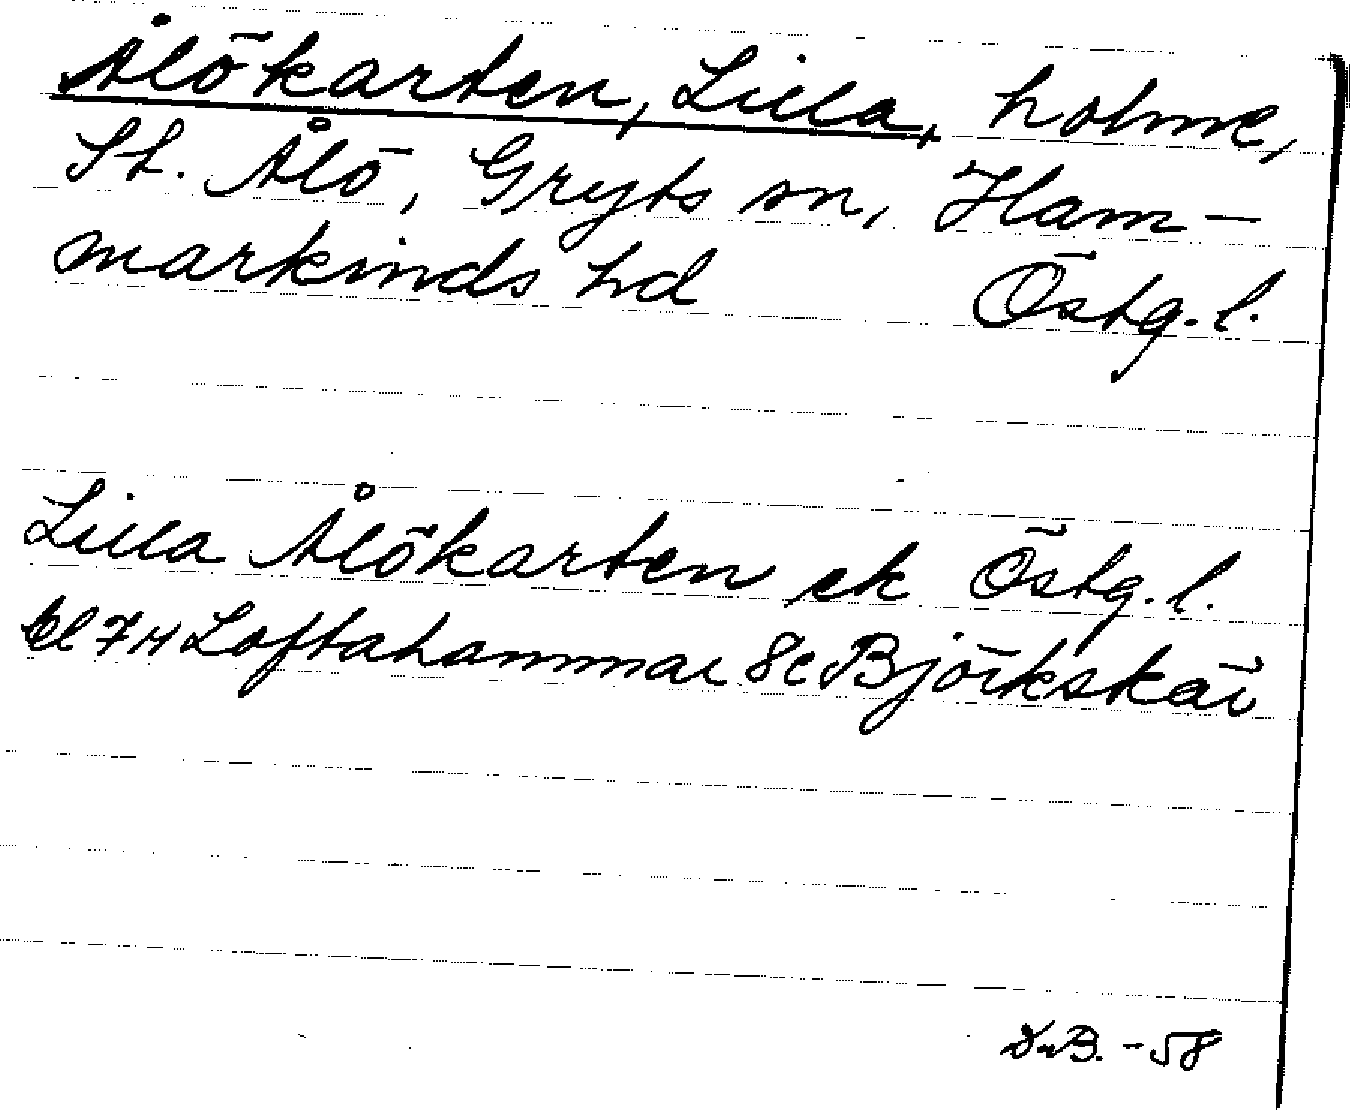 Ålökarten, Lilla, holme,
St. Ålö, Gryts sn, Ham-
markinds hd Östg. l.
Lilla Ålökarten ek Östg. l.
bl 7H Loftahammar 8c Björkskär
B. -58